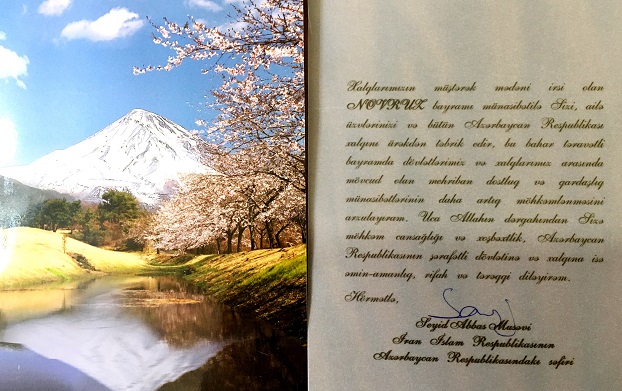 Xalqlarımızın müştərək mədəni irsi olan
NOVRUZ bayramı münasibətilə Sizi, ailə
üzvlərinizi və bütün Azərbaycan Respublikası
xalqını ürəkdən təbrik edir, bu bahar təravətli
bayramda dövlətlərimiz və xalqlarımız arasında
mövcud olan mehriban dostluq və qardaşlıq
münasibətlərinin daha artıq möhkəmlənməsini
arzulayıram. Uca Allahın dərgahından Sizə
möhkəm cansağlığı və xoşbəxtlik, Azərbaycan
Respublikasının şərəfətli dövlətinə və xalqına isə
əmin-amanlıq, rifah və tərəqqi diləyirəm.
Hörmətlə,
Seyid Abbas Musəvi
İran İslam Respublikasının
Azərbaycan Respublikasındakı səfiri